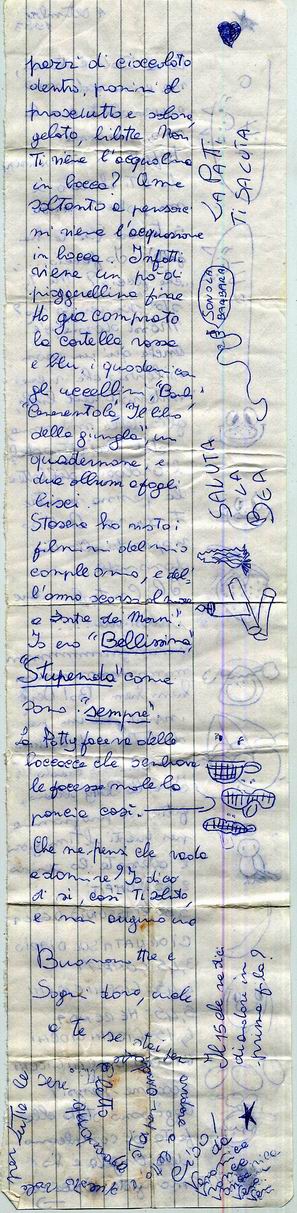 pezzi di cioccolato
dentro, panini al
prosciutto e salame
gelato, bibite. Non
Ti viene l'acquolina
in bocca? A me
soltanto a pensarci
mi viene l'acquolina
in bocca. Infatti
viene un po' di
pioggerellina fine
Ho già comprato
la cartella rossa
e blu, i quaderni con
gli uccellini, "Bambi"
"Cenerentola", "Il libro
della giungla", un
quadernone, e
due album a fogli
lisci.
Stasera ho visto i
filmini del mio
compleanno, e del-
l'anno scorso al mare
Io ero "Bellissima"
"Stupenda" come
sono "sempre"
La Patty faceva delle
boccacce che sembrava
le facesse male la
pancia così.
Che ne pensi che vada
a dormire? Io dico
di sì, così Ti saluto,
e noi auguriamo
Buonanotte e
Sogni d'oro, anche
a te se stai per
LA PATTI
TI SALUTA
SONO LA
BARBARA
SALUTA
LA
BEA
Il 15 devo dirci
di andare in
prima fila?
per tutte le
sere
Ciao